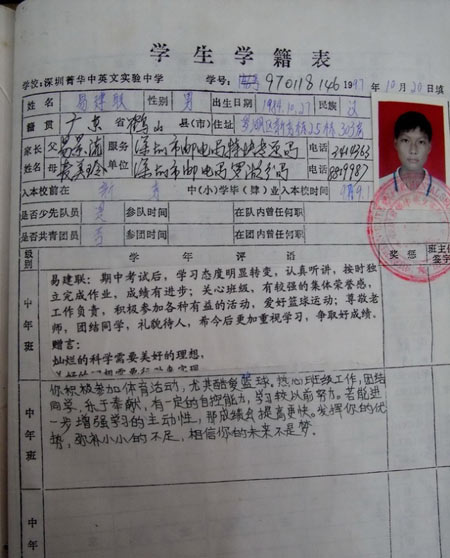 学生学籍表
学校:深圳菁华中英文实验中学 学号: 970118146 1997年10月20日填
姓名 易建联 性别 男 出生日期 1984.10.27 民族 汉
籍贯 广东省鹤山县(市)住址
家长 易景流 服务 深圳市邮电局特快专递局 电话
姓名 母 麦玉玲 单位 深圳市邮电局 电话
入本校前在 (中)(小)学毕(肄)业入本校时间
是否少先队员 参队时间 在队内曾任何职
是否共青团员 否 参团时间 在团内曾任何职
级别 学年评语 奖惩 班主任签字
中年班
易建联:期中考试后,学习态度明显转变,认真听讲,按时独
立完成作业,成绩有进步;关心班级,有较强的集体荣誉感,
工作负责,积极参加各种有益的活动,爱好篮球运动;尊敬老
师,团结同学,礼貌待人,希今后更加重视学习,争取好成绩。
赠言:
灿烂的科学需要美好的理想,
中年班
你积极参加体育活动,尤其酷爱篮球。热心班级工作,团结
同学,乐于奉献,有一定的自控能力,学习较以前努力。若能进
一步增强学习的主动性,那成绩会提高更快。发挥你的优
势,弥补小小的不足,相信你的未来不是梦。
中年